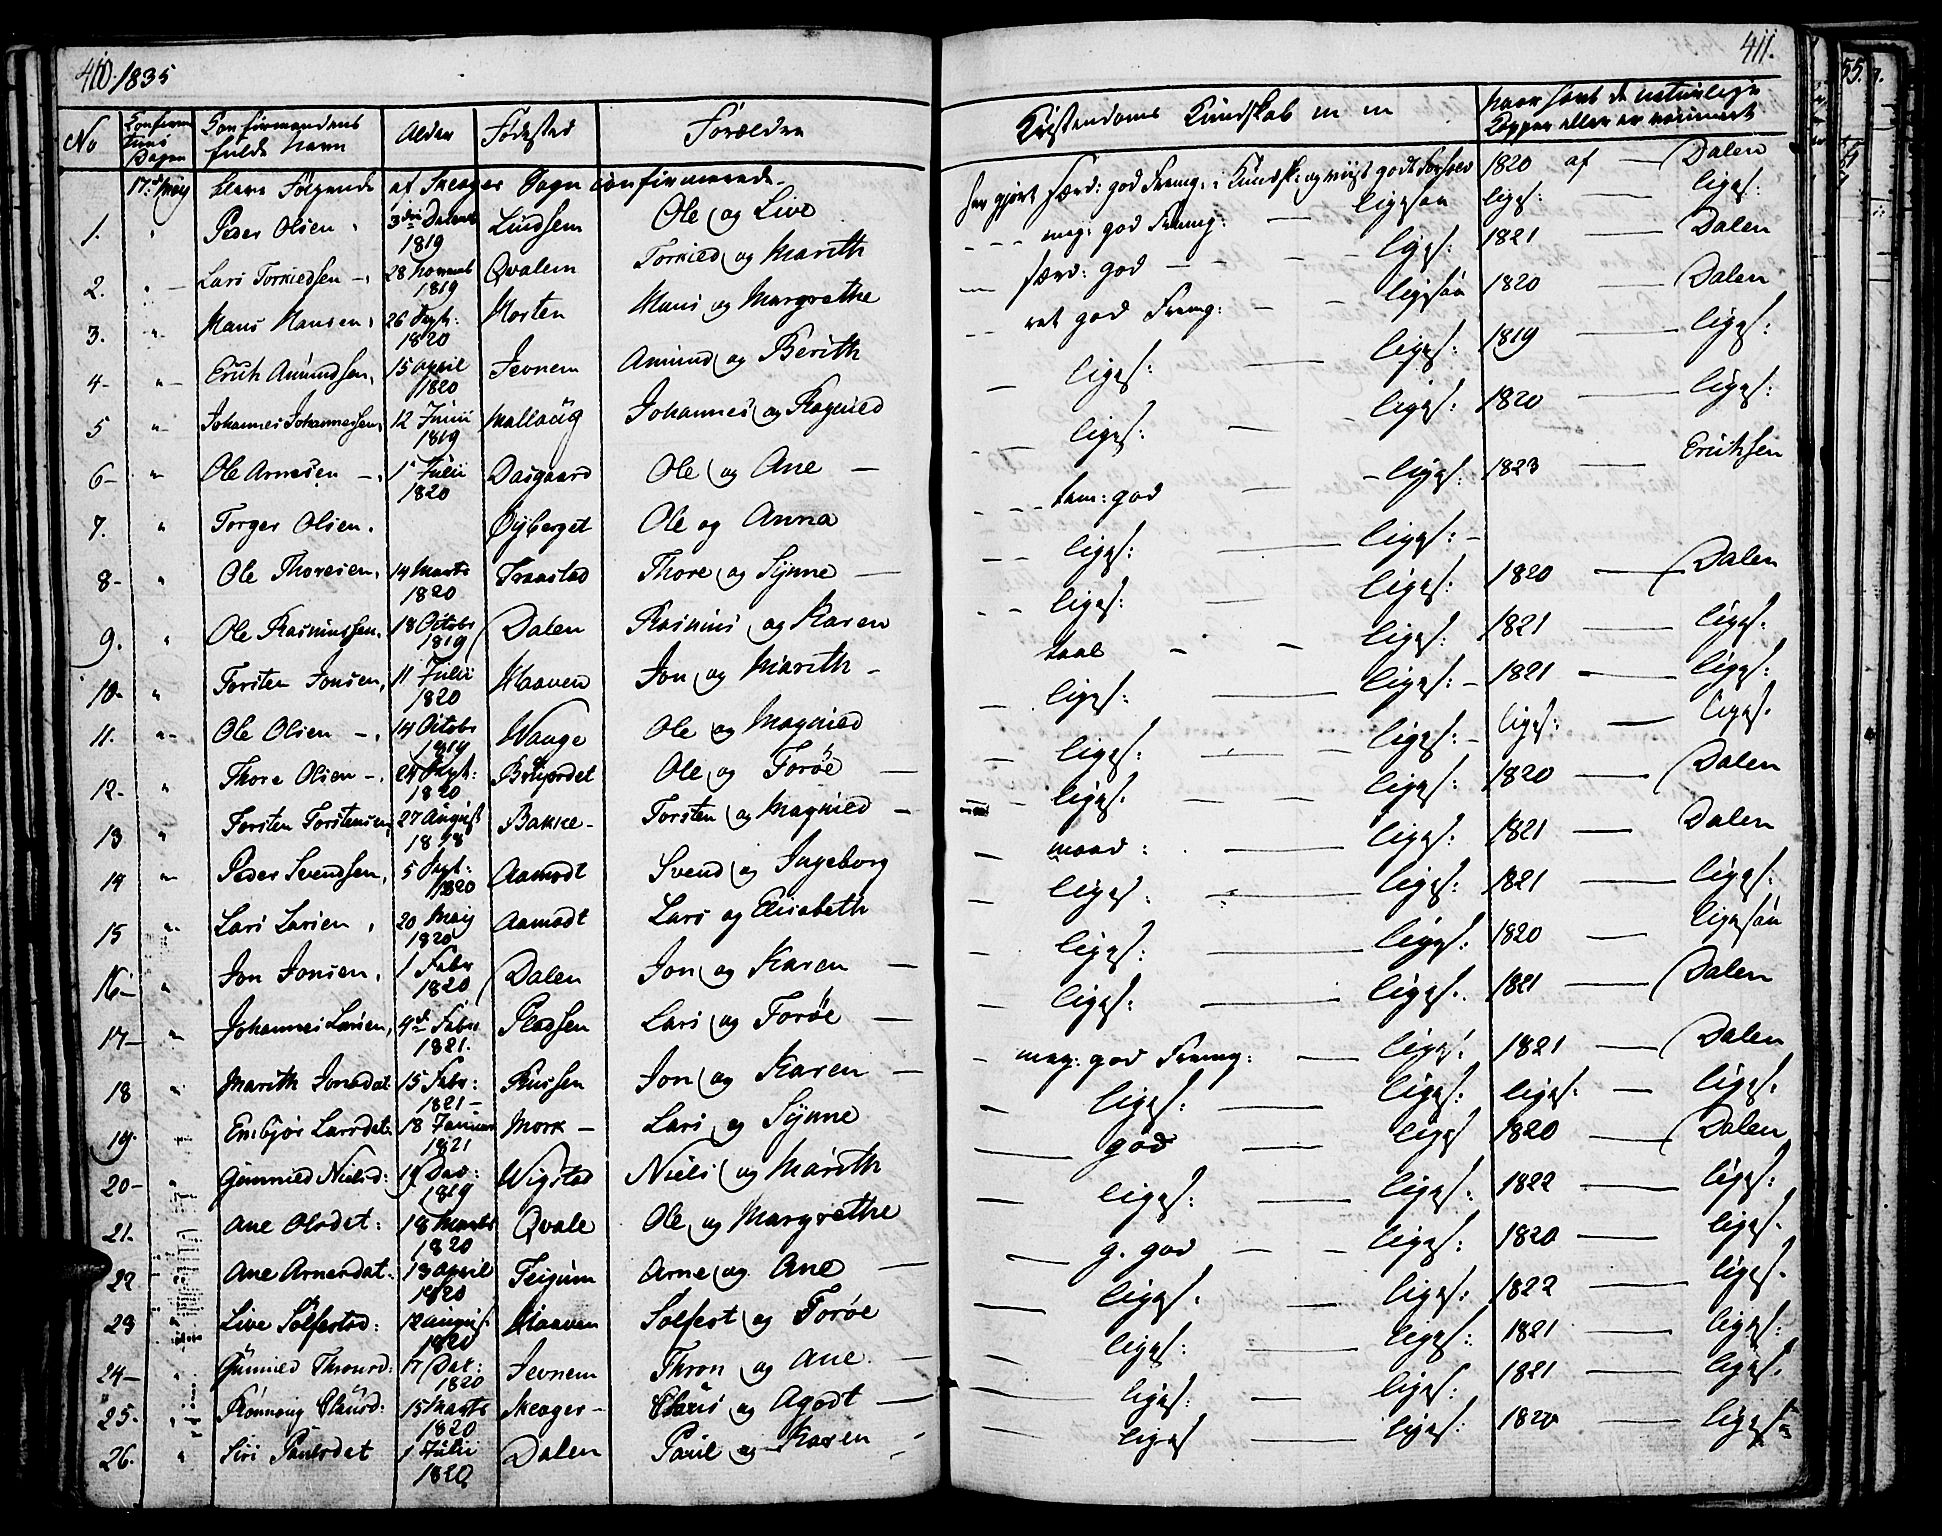 410. 1835
No Confirma tions Dagen Confirmandens fulde Navn Alder Fødested Forældre
17de May bleve Følgende af Skeager Sogn confirmerede
1. " Peder Olsen 3die Decemb 1819 Lindsem Ole og Live
2. " Lars Torkiedsen 28 Novemb 1819 Qvalem Torkied og Marith
3. " Hans Hansen 26 Sept: 1820 Horten Hans og Margrethe
4 " Erich Amundsen 15 april 1820 Jevnem Amund og Berith
5 " Johannes Johannessen 12 Junii 1819 Johannes og Ragnied
6 " Ole Arnesen 1 Julii 1820 Dasgaard Ole og Ane
7. " Torger Olsen Øyberget Ole og Anna
8 " Ole Thoresen 14 Marts 1820 Traastad Thore og Synne
9. " Ole Rasmussen 18 Octobr 1819 Dalen Rasmus og Karen
10 " Torsten Jonsen 11 Julii 1820 Haaven Jon og Marith
11. " Ole Olsen 14 Octobr 1819 Wange Ole og Magnied
12. " Thore Olsen 24 Sept: 1820 Ole og Torøe
13 " Torsten Torstensen 27 August 1818 Bakke Torsten og Magnied
14 " Peder Svendsen 5 Sept: 1820 Aamodt Svend og Ingeborg
15 " Lars Larsen 20 May 1820 Aamodt Lars og Elisabeth
16 " Jon Jonsen 1 Febr 1820 Dalen Jon og Karen
17 " Johannes Larsen 4de Febr 1821. Pladsen Lars og Torøe
18 " Marith Jonsdat 15 Febr: 1821 Russen Jon og Karen
19. " Embjør Larsdat 18 Januar 1821 Mork Lars og Synne
20 " Gunnied Nielsd: Dec: 1819 Wigstad Niels og Marith
21. Ane Olsdat: 18 Marts 1820 Qvale Ole og Margrethe
22 Ane Arnesdat: 13 april 1820 Teigum Arne og Ane
23 Live Solfestsd: 12 august 1820 Haaven Solfest og Torøe
24 " Gunnied Thronsd: 17 Dec: 1820 Jevnem Thron og Ane
25. " Rønnaug Clausd: 15 Marts 1820 Skeager Claus og Agodt
26. " Siri Paulsdat 1 Julii 1820 Dalen Paul og Karen
411.
Kristendoms Kundskab m m Naar havt de naturlige Kopper eller er vaccineret
har gjort særd: god Fremg. i Kundsk: og viist godt Forhold 1820 af Dalen
meg: god Fremg: ligesaa liges: liges:
særd: god liges: 1821 Dalen
ret god Fremg: ligesaa 1820 Dalen
liges: liges: 1819 liges:
liges: liges: 1820 liges:
tem: god liges: 1823 Erichsen
liges: liges:
liges: liges: 1820 Dalen
taal liges: 1821 liges.
liges: liges: 1821 liges:
liges: liges: liges: liges.
liges. liges: 1820 Dalen
maad: liges: 1821 Dalen
liges. liges: 1821 liges.
liges: liges: 1820 ligesaa
liges: liges. 1821 Dalen
meg: god Fremg: liges: 1821 Dalen
liges: liges: liges: liges.
god liges 1820 Dalen
liges: liges: 1822 liges:
g. god liges: 1820 liges.
liges. liges: 1822 liges.
liges: liges: 1821 liges:
liges: liges: 1821 liges.
liges liges: 1820 liges:
55.